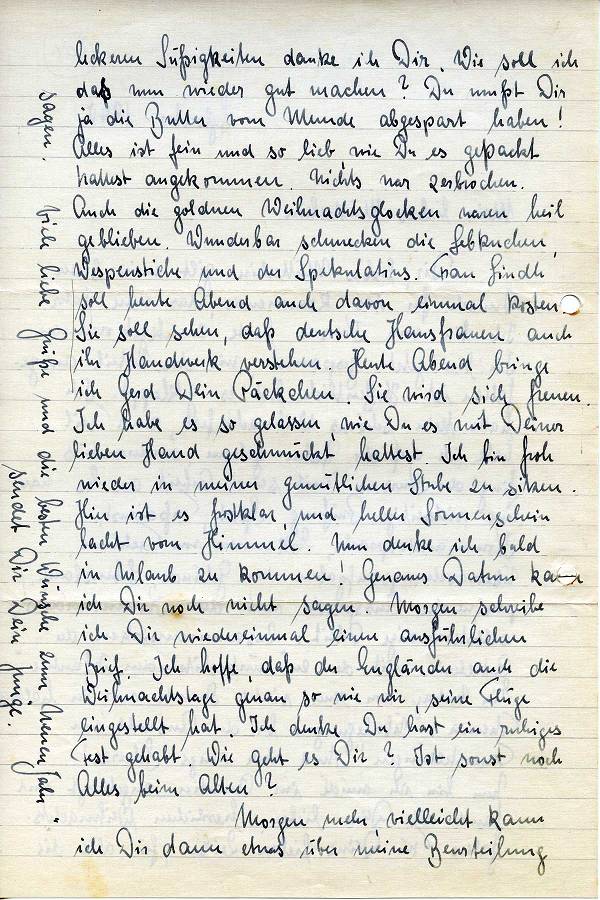 leckeren Süßigkeiten danke ich Dir. Wie soll ich
daß nun wieder gut machen? Du mußt Dir
ja die Butter vom Munde abgespart haben!
Alles ist fein und so lieb, wie Du es gepackt
hattest angekommen. Nichts war zerbrochen.
Auch die goldnen Weihnachtsglocken waren heil
geblieben. Wunderbar schmecken die Lebkuchen,
Wespenstiche und der Spekulatius. Frau
soll heute Abend auch davon einmal kosten.
Sie soll sehen, daß deutsche Hausfrauen auch
ihr Handwerk verstehen. Heute Abend bringe
ich Gerd Dein Päckchen. Sie wird sich freuen.
Ich habe es so gelassen, wie Du es mit Deiner
lieben Hand geschmückt hattest. Ich bin froh
wieder in meiner gemütlichen Stube zu sitzen.
Hier ist es frostklar, und heller Sonnenschein
lacht vom Himmel. Nun denke ich bald
in Urlaub zu kommen! Genaues Datum kann
ich Dir noch nicht sagen. Morgen schreibe
ich Dir wiedereinmal einen ausführlichen
Brief. Ich hoffe, daß der Engländer auch die
Weihnachtstage genau so wie wir, seine Flüge
eingestellt hat. Ich denke Du hast ein ruhiges
Fest gehabt. Wie geht es Dir? Ist sonst noch
Alles beim Alten?
Morgen mehr, vielleicht kann
ich Dir dann etwas über meine Beurteilung
sagen. Viele liebe Grüße und die besten Wünsche zum Neuen Jahr
sendet Dir Dein Junge.